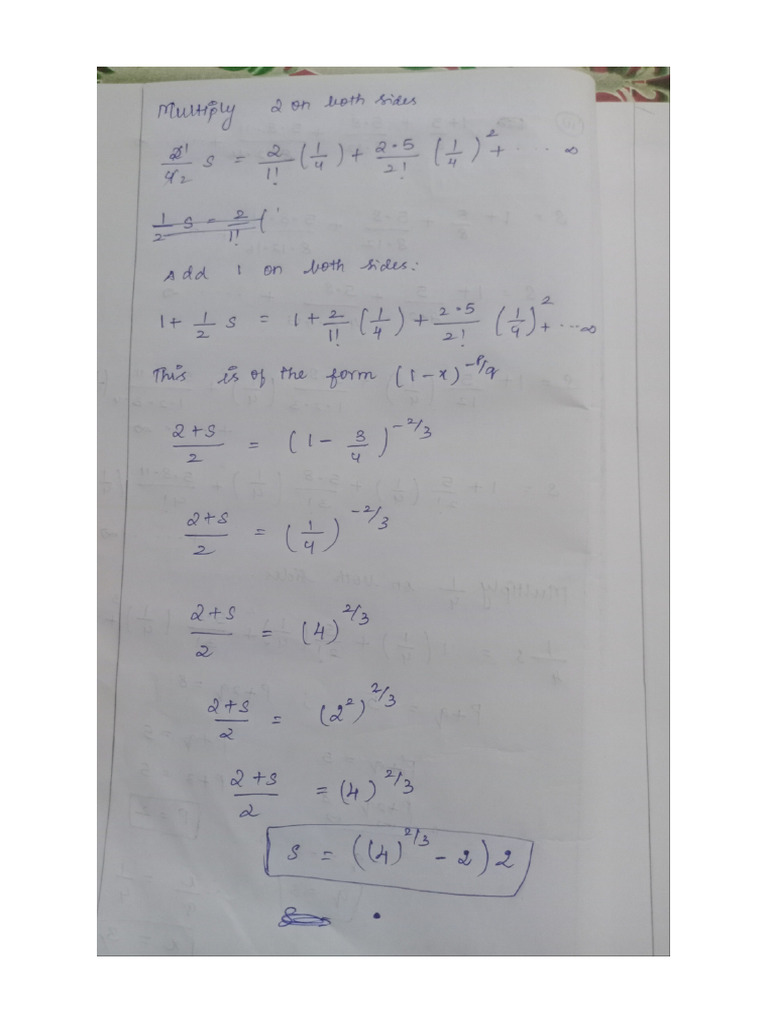 Multiply 2 on both sides
2¹/4₂ S = 2/1! (1/4) + 2·5/2! (1/4)² + ··· ∞
1/2 S = 2/1! (
Add 1 on both sides:
1 + 1/2 S = 1 + 2/1! (1/4) + 2·5/2! (1/4)² + ··· ∞
This is of the form (1-x)^-P/q
2+S/2 = (1 - 3/4)^-2/3
2+S/2 = (1/4)^-2/3
2+S/2 = (4)^2/3
2+S/2 = (2²)^2/3
2+S/2 = (4)^2/3
S = ((4)^2/3 - 2) 2